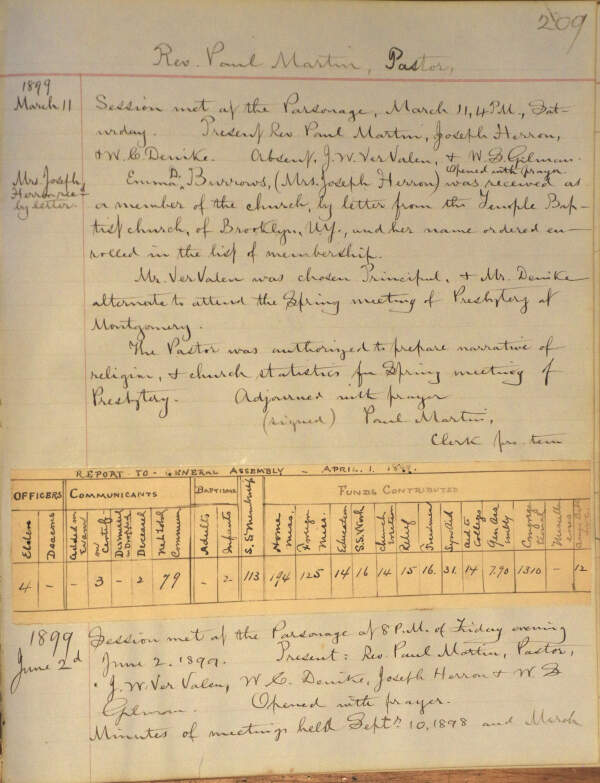 209
Rev. Paul Martin, Pastor,
1899
March 11
Session met at the Parsonage, March 11, 4 P.M., Sat-
urday. Present Rev. Paul Martin, Joseph Herron,
& W. C. Denike. Absent, J. W. Ver Valen, & W. S. Gilman.
Opened with prayer.
Mrs. Joseph
Herron rec'd
by letter
Emma D. Burrows, (Mrs. Joseph Herron) was received as
a member of the church, by letter from the Temple Bap-
tist church, of Brooklyn, N.Y., and her name ordered en-
rolled in the list of membership.
Mr. Ver Valen was chosen Principal, & Mr. Denike
alternate to attend the Spring meeting of Presbytery at
Montgomery.
The Pastor was authorized to prepare narrative of
religion, & church statistics for Spring meeting of
Presbytery. Adjourned with prayer
(signed) Paul Martin,
Clerk pro. tem
REPORT - TO - GENERAL ASSEMBLY - APRIL. 1.
OFFICERS COMMUNICANTS BAPTISMS S.S. Membership FUNDS CONTRIBUTED
Elders Deacons Added on Exam. on Certif. Dismissed Deceased Total Commun. Adults Infants Home Miss. Foreign Miss. Education S.S. Work Church Erection Relief Freedmen Synod. Aid Aid to Colleges Gen. Assembly Congregational
4 - - 3 - 2 79 - 2 113 194 125 14 16 14 15 16. 31. 14 7.90 1310 - 12
1899
June 2d
Session met at the Parsonage at 8 P.M. of Friday evening
June 2. 1899. Present: Rev. Paul Martin, Pastor,
J. W. Ver Valen, W. C. Denike, Joseph Herron & W. S
Gilman. Opened with prayer.
Minutes of meetings held Septr 10, 1898 and March